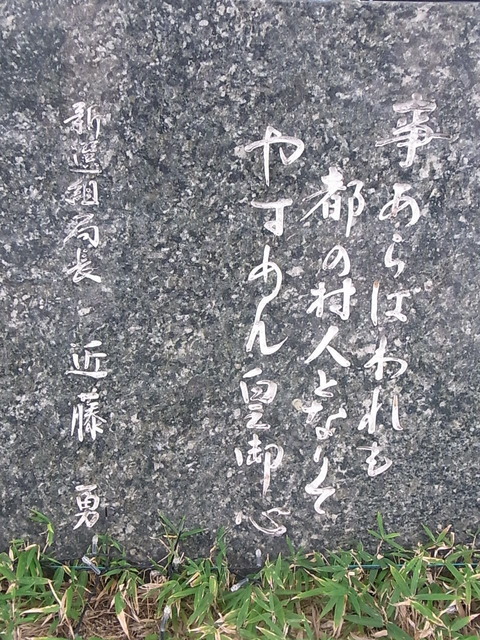 事あらばわれも
都の村人となりて
やすめん皇御心
新選組局長 近藤 勇